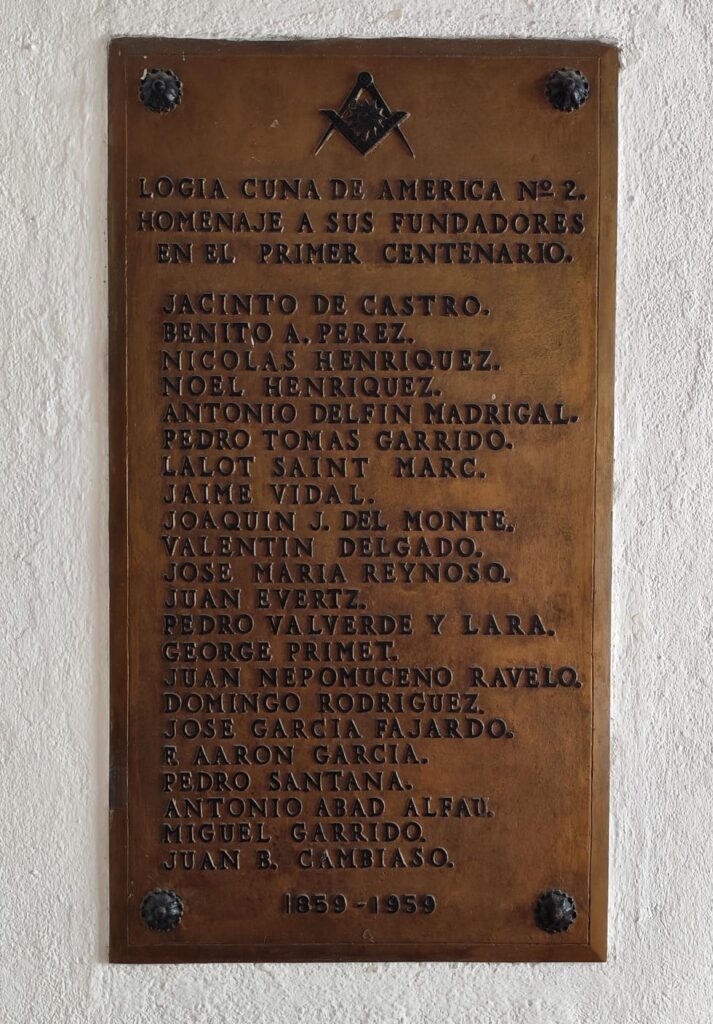 LOGIA CUNA DE AMERICA Nº 2.
HOMENAJE A SUS FUNDADORES
EN EL PRIMER CENTENARIO.
JACINTO DE CASTRO.
BENITO A. PEREZ.
NICOLAS HENRIQUEZ.
NOEL HENRIQUEZ.
ANTONIO DELFIN MADRIGAL.
PEDRO TOMAS GARRIDO.
LALOT SAINT MARC.
JAIME VIDAL.
JOAQUIN J. DEL MONTE.
VALENTIN DELGADO.
JOSE MARIA REYNOSO.
JUAN EVERTZ.
PEDRO VALVERDE Y LARA.
GEORGE PRIMET.
JUAN NEPOMUCENO RAVELO.
DOMINGO RODRIGUEZ.
JOSE GARCIA FAJARDO.
F. AARON GARCIA.
PEDRO SANTANA.
ANTONIO ABAD ALFAU.
MIGUEL GARRIDO.
JUAN B. CAMBIASO.
1859-1959